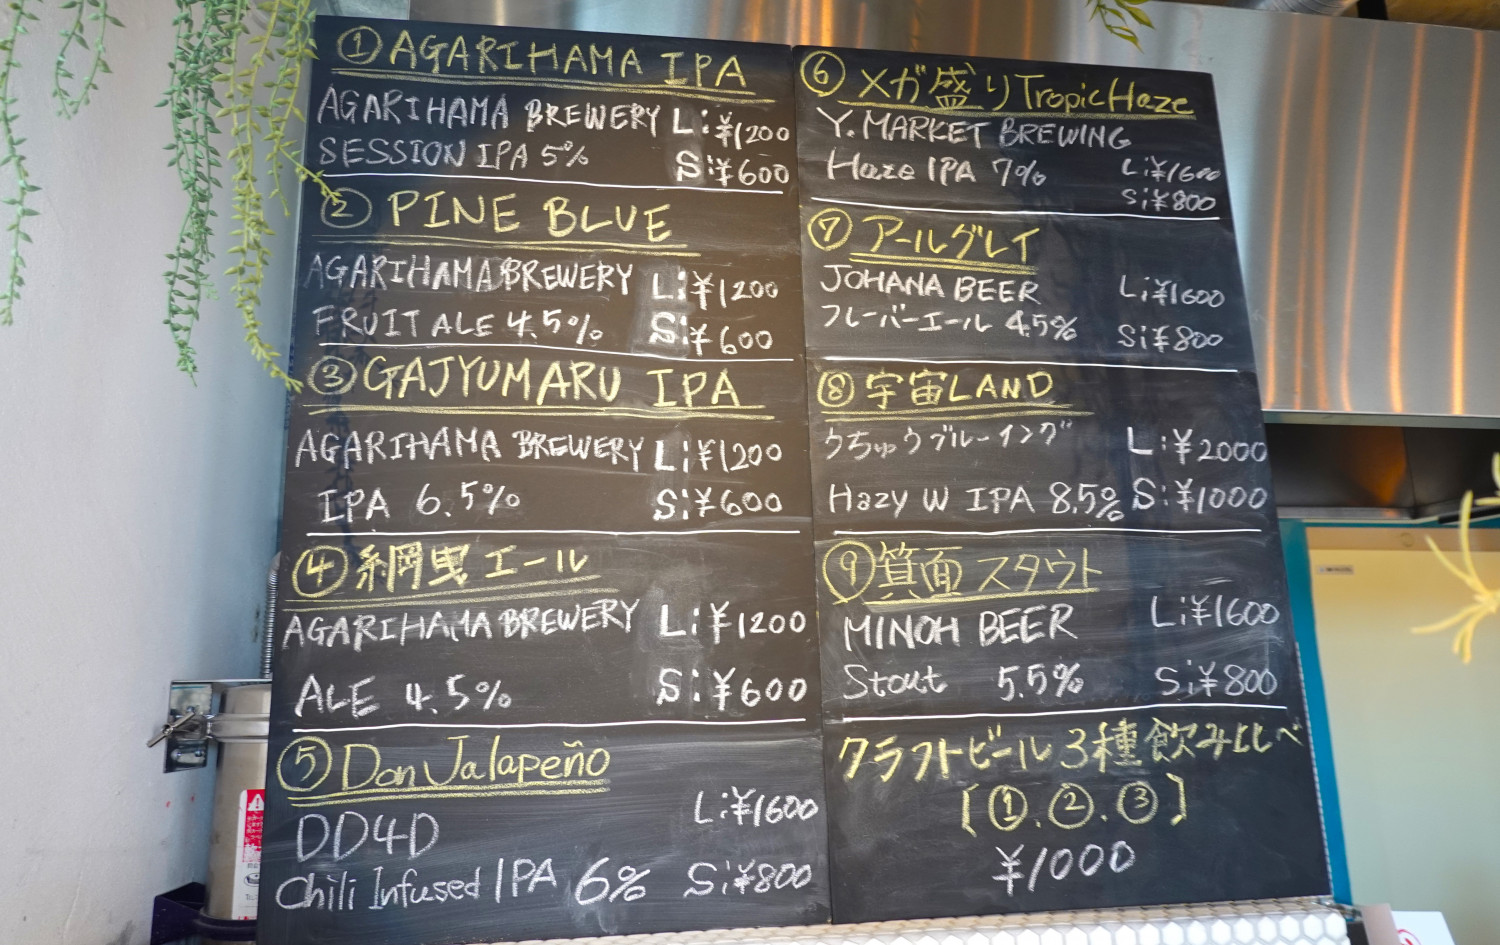 ① AGARIHAMA IPA
AGARIHAMA BREWERY L:¥1200
SESSION IPA 5% S:¥600
② PINE BLUE
AGARIHAMA BREWERY L:¥1200
FRUIT ALE 4.5% S:¥600
③ GAJYUMARU IPA
AGARIHAMA BREWERY L:¥1200
IPA 6.5% S:¥600
④ 綱曳エール
AGARIHAMA BREWERY L:¥1200
ALE 4.5% S:¥600
⑤ Don Jalapeño
L:¥1600
DD4D
Chili Infused IPA 6% S:¥800
⑥ メガ盛りTropicHaze
Y.MARKET BREWING
Haze IPA 7% L:¥1600
S:¥800
⑦ アールグレイ
JOHANA BEER L:¥1600
フレーバーエール 4.5% S:¥800
⑧ 宇宙LAND
うちゅうブルーイング L:¥2000
Hazy W IPA 8.5% S:¥1000
⑨ 箕面スタウト
MINOH BEER L:¥1600
Stout 5.5% S:¥800
クラフトビール3種飲み比べ
[①.②.③]
¥1000